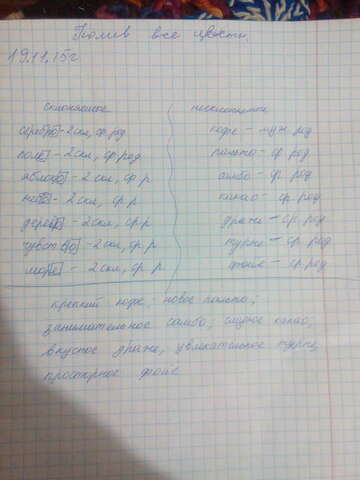 Полив все цветы.
19.11.15г
склоняемые несклоняемые
серебро - 2 скл, ср.род кофе - муж.род
поле - 2 скл, ср.род пальто - ср.род
яблоко - 2 скл, ср.р самбо - ср.род
небо - 2 скл, ср.р какао - ср.род
дерево - 2 скл, ср.р драже - ср.род
чувство - 2 скл, ср.р турне - ср.род
море - 2 скл, ср.р фойе - ср.род
крепкий кофе; новое пальто;
занимательное самбо; какао;
вкусное драже, увлекательное турне,
просторное фойе